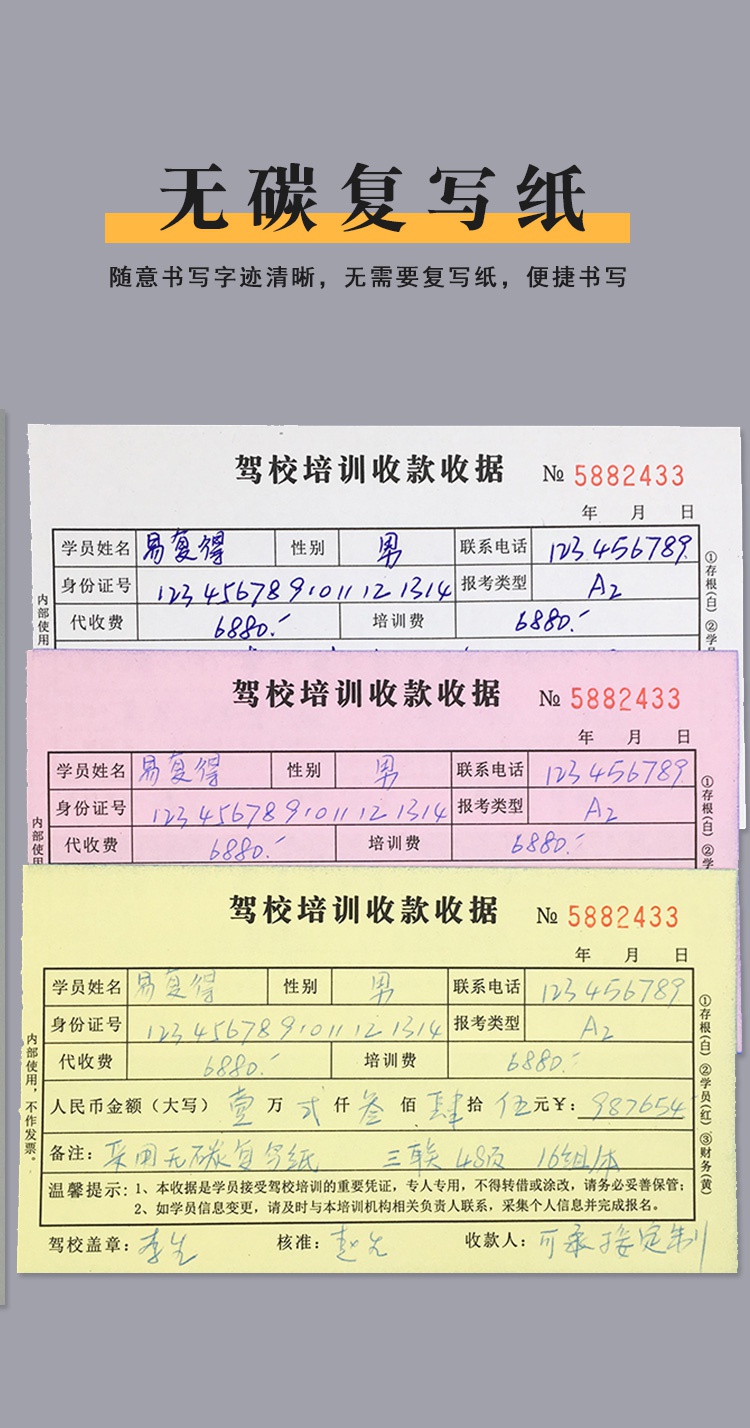 无碳复写纸
随意书写字迹清晰，无需要复写纸，便捷书写
驾校培训收款收据 № 5882433
年 月 日
学员姓名 易复得 性别 男 联系电话 123456789
身份证号 1234567891011121314 报考类型 A2
代收费 6880.- 培训费 6880.-
内部使用
①存根(白) ②学员
驾校培训收款收据 № 5882433
年 月 日
学员姓名 易复得 性别 男 联系电话 123456789
身份证号 1234567891011121314 报考类型 A2
代收费 6880.- 培训费 6880.-
内部使用
①存根(白) ②学
驾校培训收款收据 № 5882433
年 月 日
学员姓名 易复得 性别 男 联系电话 123456789
身份证号 1234567891011121314 报考类型 A2
代收费 6880.- 培训费 6880.-
人民币金额（大写） 壹 万 贰 仟 叁 佰 肆 拾 伍 元￥: 987654
备注: 采用无碳复写纸 三联 48页 16组/本
温馨提示: 1、本收据是学员接受驾校培训的重要凭证，专人专用，不得转借或涂改，请务必妥善保管；
2、如学员信息变更，请及时与本培训机构相关负责人联系，采集个人信息并完成报名。
驾校盖章: 李生 核准: 赵先 收款人: 可承接定制
内部使用，不作发票。
①存根(白) ②学员(红) ③财务(黄)